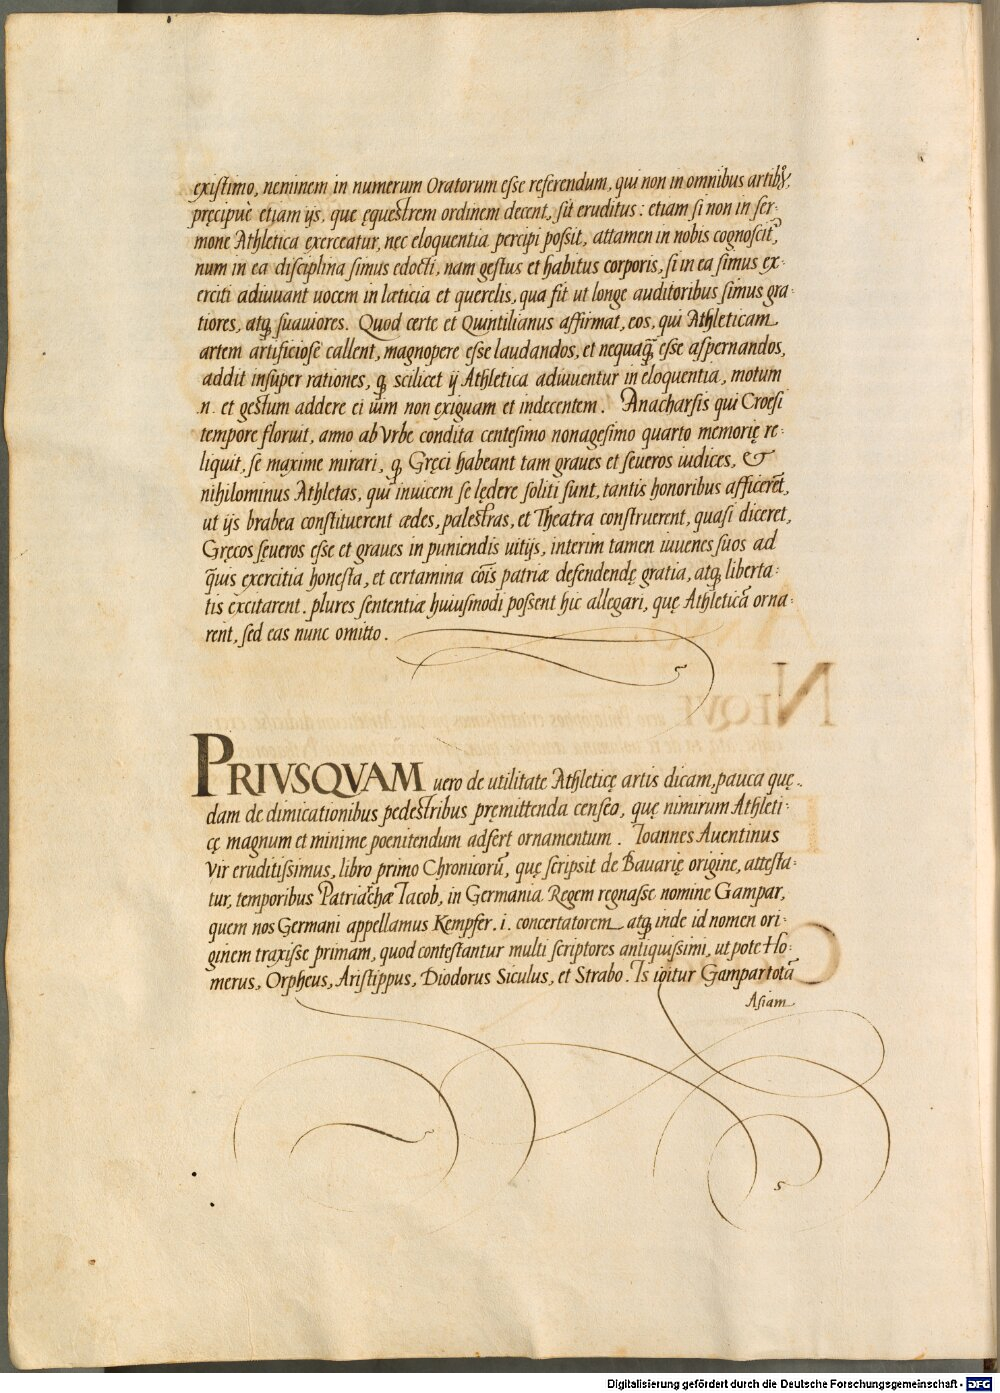 existimo, neminem in numerum Oratorum esse referendum, qui non in omnibus artibꝰ,
pręcipuè etiam ijs, que ęquestrem ordinem decent, sit eruditus: etiam si non in ser-
mone Athletica exerceatur, nec eloquentia percipi possit, attamen in nobis cognoscit̃,
num in ea disciplina simus edocti, nam gestus et habitus corporis, si in ea simus ex-
erciti adiuuant uocem in læticia et querelis, qua fit ut longe auditoribus simus gra-
tiores, atq̃ suauiores. Quod certe et Quintilianus affirmat, eos, qui Athleticam
artem artificiosè callent, magnopere esse laudandos, et nequaq̃ esse aspernandos,
addit insuper rationes, q̃ scilicet ij Athletica adiuuentur in eloquentia, motum
.n. et gestum addere ei iũm non exiguam et indecentem. Anacharsis qui Croesi
tempore floruit, anno ab Vrbe condita centesimo nonagesimo quarto memorię re-
liquit, se maxime mirari, q̃ Gręci habeant tam graues et seueros iudices, &
nihilominus Athletas, qui inuicem se lędere soliti sunt, tantis honoribus afficerẽt,
ut ijs brabea constituerent ædes, palestras, et Theatra construerent, quasi diceret,
Gręcos seueros esse et graues in puniendis uitijs, interim tamen iuuenes suos ad
q̃uis exercitia honesta, et certamina cõis patriæ defendendę gratia, atq̃ liberta-
tis excitarent. plures sententiæ huiusmodi possent hic allegari, quę Athleticã orna-
rent, sed eas nunc omitto.
PRIVSQVAM uero de utilitate Athleticę artis dicam, pauca quę-
dam de dimicationibus pedestribus pręmittenda censeo, quę nimirum Athleti-
cę magnum et minime poenitendum adfert ornamentum. Ioannes Auentinus
Vir eruditissimus, libro primo Chronicorũ, quę scripsit de Bauarię origine, attesta-
tur, temporibus Patriarchæ Iacob, in Germania Regem regnasse nomine Gampar,
quem nos Germani appellamus Kempfer .i. concertatorem atq̃ inde id nomen ori-
ginem traxisse primam, quod contestantur multi scriptores antiquissimi, ut pote Ho-
merus, Orpheus, Aristippus, Diodorus Siculus, et Strabo. Is igitur Gampar totã
Asiam
Digitalisierung gefördert durch die Deutsche Forschungsgemeinschaft - DFG